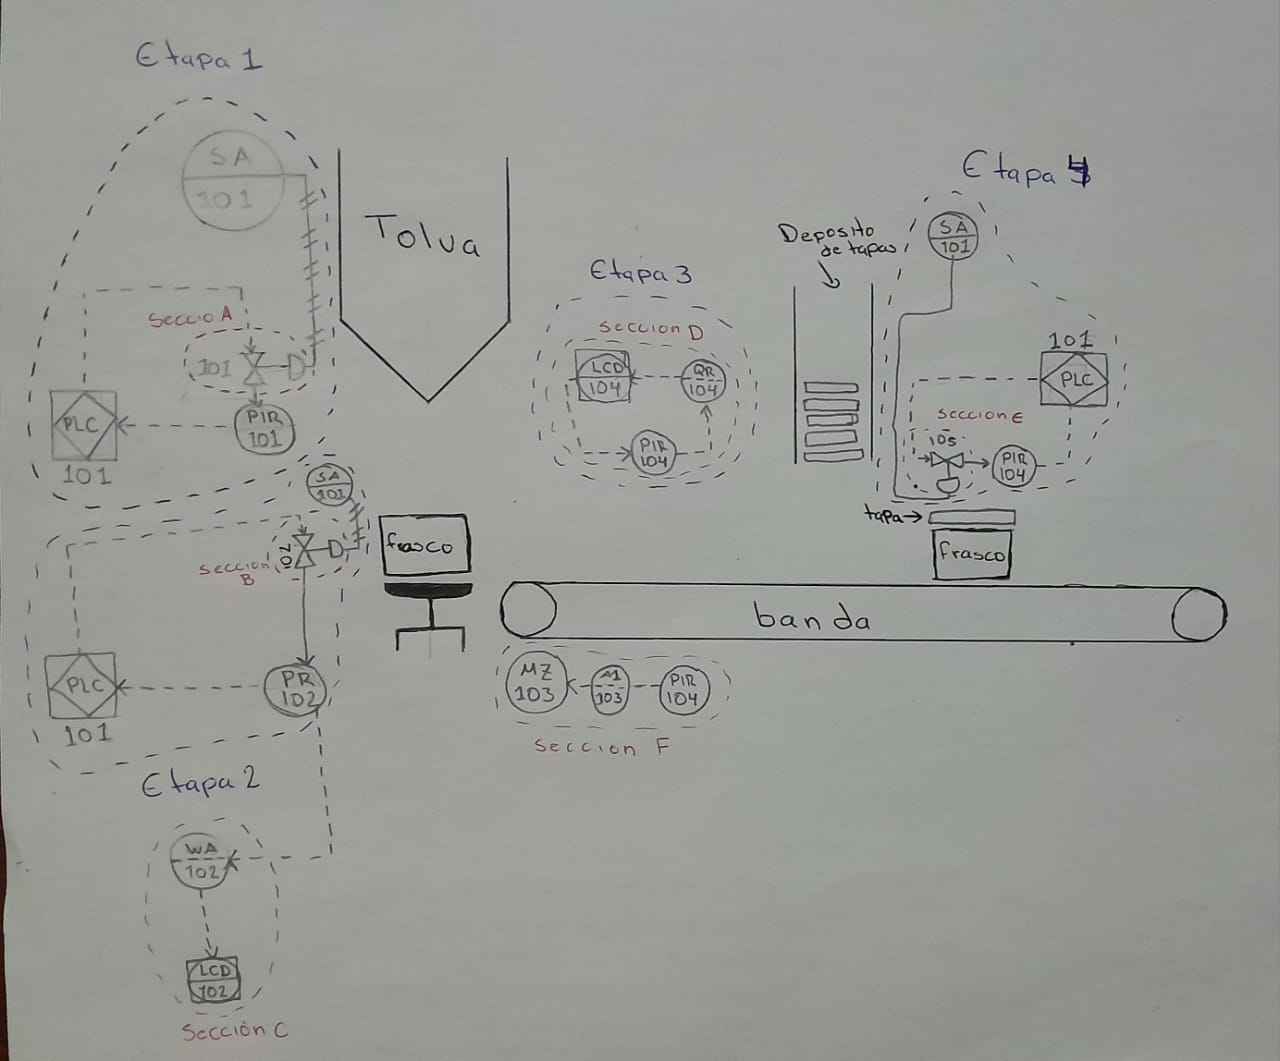 Etapa 1
SA
101
Tolva
Seccio A
101
PLC
101
PIR
101
SA
101
102
Seccion
B
frasco
PLC
101
PR
102
Etapa 2
WA
102
LCD
102
Sección C
Etapa 3
Seccion D
LCD
104
QR
104
PIR
104
Deposito
de tapas
Etapa 4
SA
101
101
PLC
Seccion E
105
PIR
104
tapa
frasco
banda
MZ
103
A1
103
PIR
104
Seccion F